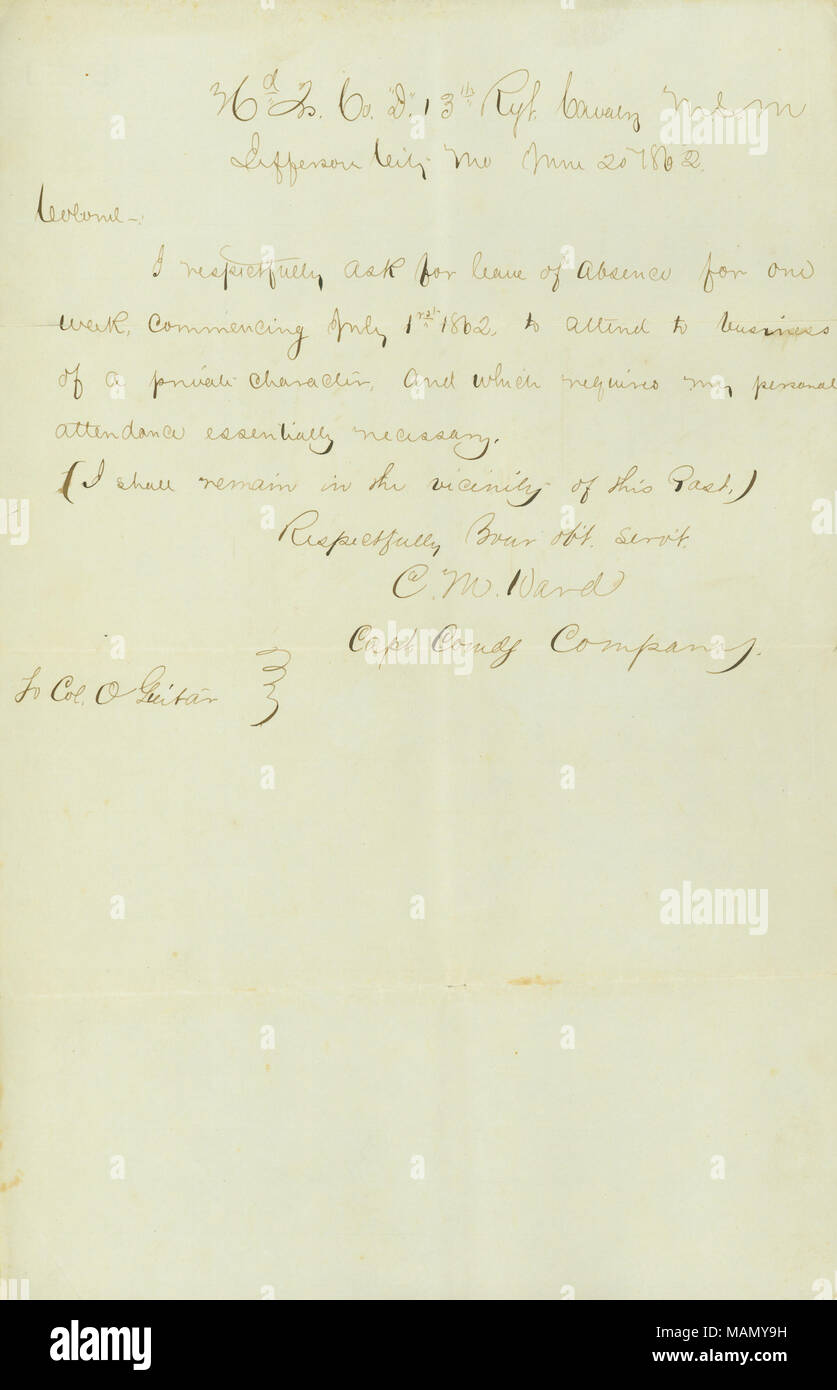 Hd Qs. Co. "D". 13th Rgt. Cavalry M S M
Jefferson City Mo June 25 1862.
Colonel-:
I respectfully ask for leave of absence for one
week, commencing July 1rst 1862, to attend to business
of a private character, and which requires my personal
attendance essentially necessary.
(I shall remain in the vicinity of this Post.)
Respectfully Your obt. servt.
C. M. Ward
Capt Comdg Company.
To Col. O Guitar
alamy
Image ID: MAMY9H
www.alamy.com